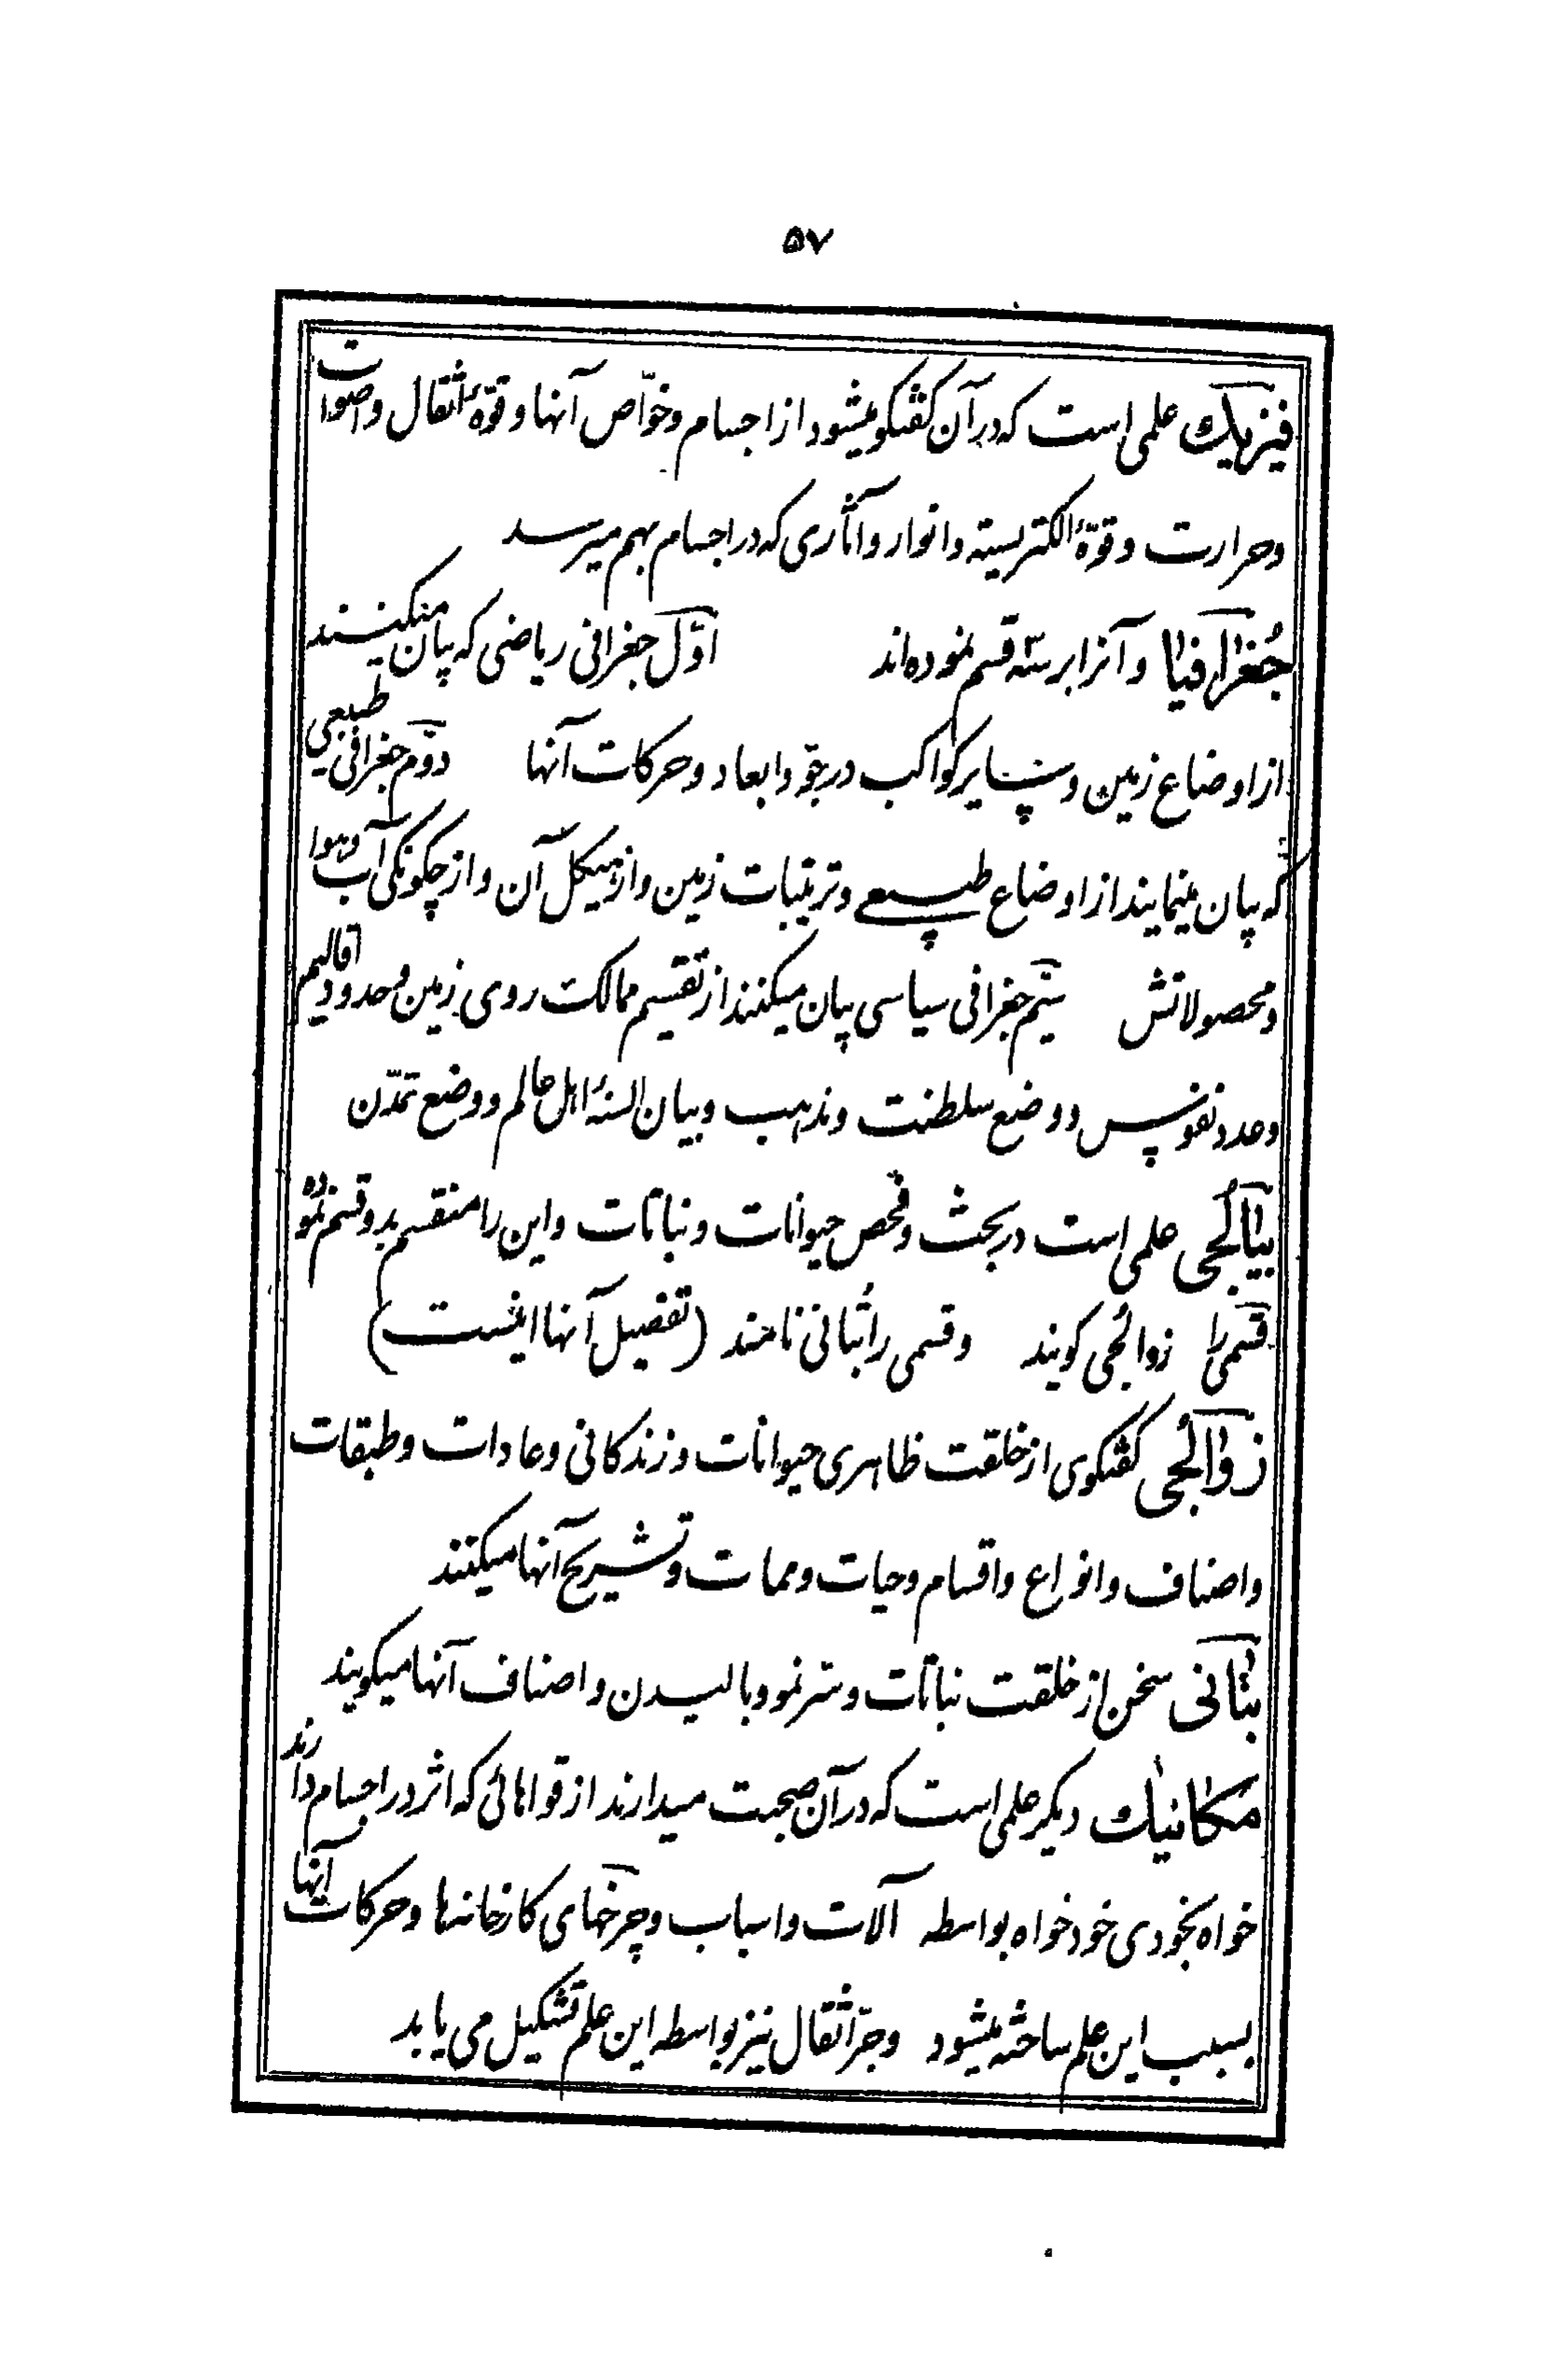 ۵۷
فیزیک علمی است که در آن گفتگو میشود از اجسام و خوّاص آنها و قوّهٔ اثقال و اصوات
و حرارت و قوّهٔ الکتریسیته و انوار و آثاری که در اجسام بهم میرسد
جُغرافیا و آنرا بر سه قسم نموده‌اند اوّل جغرافی ریاضی که بیان میکنند
از اوضاع زمین و سایر کواکب در جوّ و ابعاد و حرکات آنها دوّم جغرافی طبیعی
که بیان مینمایند از اوضاع طبیعی و ترتیبات زمین و از هیکل آن و از چگونگی آب و هوا
و محصولاتش سیّم جغرافی سیاسی بیان میکنند از تقسیم ممالک روی زمین و حدود اقالیم
و عدد نفوس و وضع سلطنت و مذهب و بیان السنهٔ اهل عالم و وضع تمدّن
بیالُجی علمی است در بحث و فحص حیوانات و نباتات و این را منقسم بدو قسم نموده
قسمی را زوالُجی گویند و قسمی را بُتانی نامند (تفصیل آنها اینست)
زوالُجی گفتگوی از خلقت ظاهری حیوانات و زندگانی و عادات و طبقات
و اصناف و انواع و اقسام و حیات و ممات و تشریح آنها میکنند
بتانی سخن از خلقت نباتات و سرّ نمو و بالیدن و اصناف آنها میگویند
مکانیک دیگر علمی است که در آن صحبت میدارند از قواهائی که اثر در اجسام دارند
خواه بخودی خود خواه بواسطه آلات و اسباب و چرخهای کارخانه‌ها و حرکات آنها
بسبب این علم ساخته میشود و جرّ اثقال نیز بواسطه این علم تشکیل می یابد